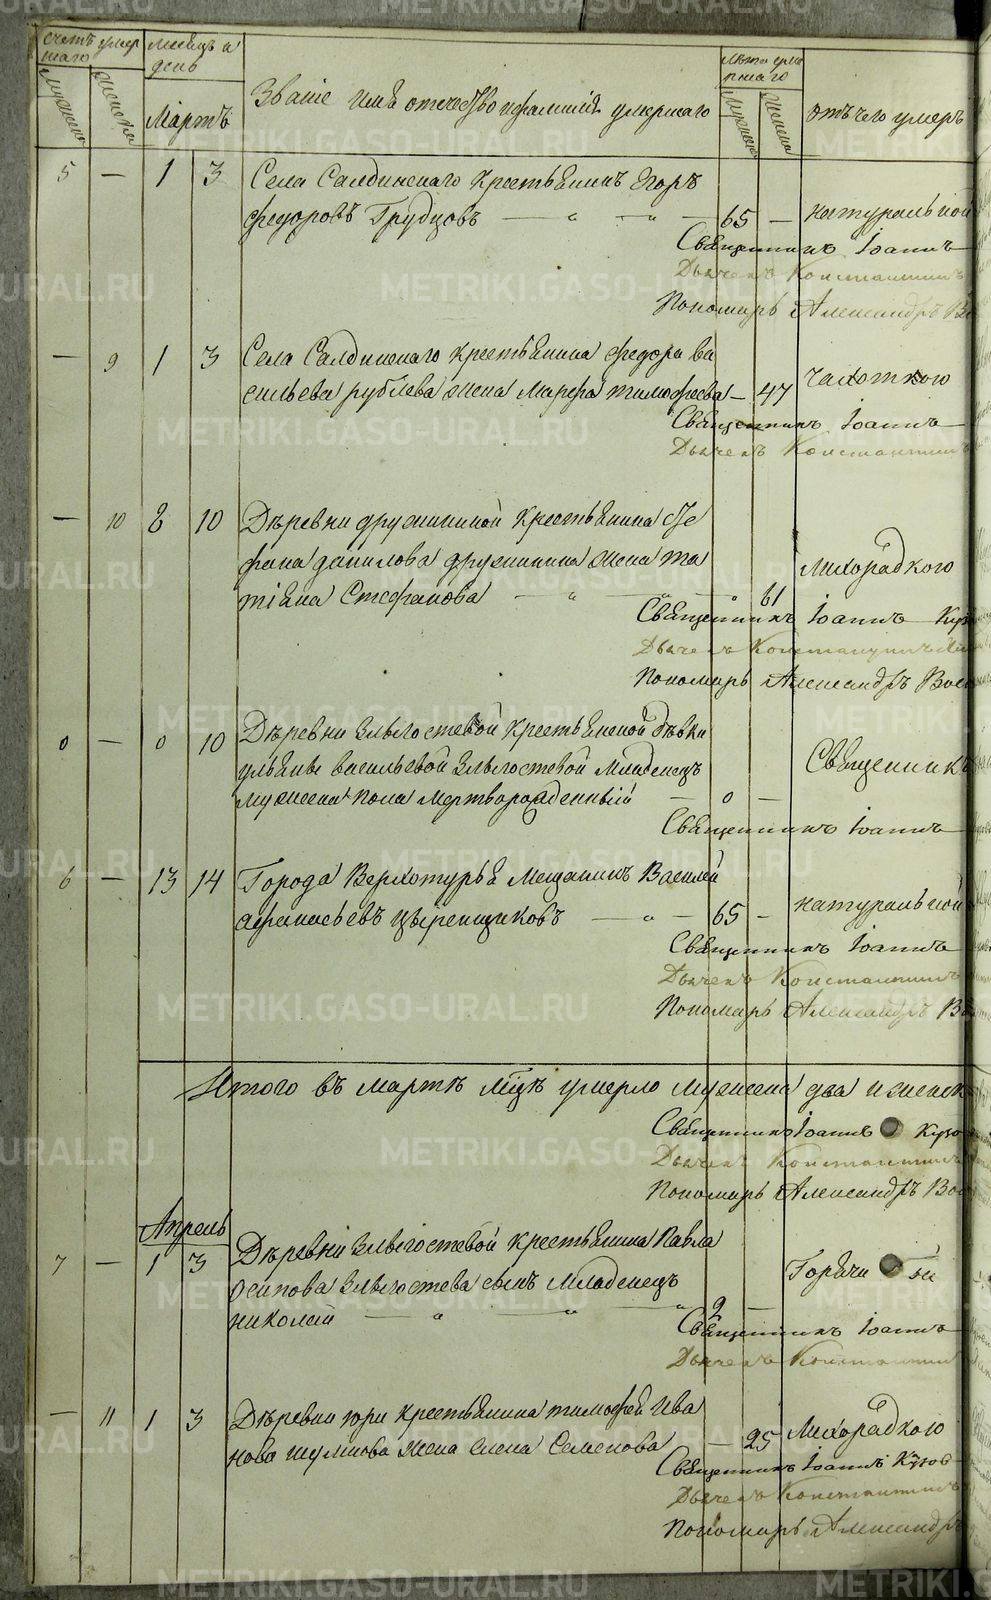 счетъ умер
шаго
мужеска
женска
месяцъ и
день
Мартъ
Званіе имя отечество и фамилія умершаго
лѣта умер
шаго
Мужска
Женска
отъ чего умеръ
5 — 1 3 Села Салдинскаго Крестьянинъ Егоръ
федоровъ Грубцовъ — „ — „ — 65 — натуральной
Священникъ Іоаннъ
Дьячекъ Константинъ
Пономарь Александръ
— 9 1 3 Села Салдинскаго Крестьянина федора ва
сильева рублева жена Марфа тимофеева — 47 чахоткою
Священникъ Іоаннъ
Дьячекъ Константинъ
— 10 8 10 Деревни дружининой Крестьянина Сте
фана данилова дружинина жена та
тіяна Стефанова — „ — „ — „ 61 Лихорадкою
Священникъ Іоаннъ
Дьячекъ Константинъ
Пономарь Александръ
0 — 0 10 Деревни Злыгостевой Крестьянской Дѣвки
ульяны васильевой Злыгостевой Младенецъ
мужеска пола мертворожденный — 0 —
Священникъ
Священникъ Іоаннъ
6 — 13 14 Города Верхотурья Мещанинъ Василей
афанасьевъ — „ — 65 — натуральной
Священникъ Іоаннъ
Дьячекъ Константинъ
Пономарь Александръ
Итого въ мартѣ мцѣ умерло мужеска два и женск
Священникъ Іоаннъ
Дьячекъ Константинъ
Пономарь Александръ
Апрель
7 — 1 3 Деревни Злыгостевой Крестьянина Павла
осипова Злыгостева сынъ Младенецъ
николай — „ — „ — „ 2 —
Священникъ Іоаннъ
Дьячекъ Константинъ
— 11 1 3 Деревни Крестьянина тимофей Ива
нова жена Елена Семенова — 25 Лихорадкою
Священникъ Іоаннъ
Дьячекъ Константинъ
Пономарь Александръ
METRIKI.GASO-URAL.RU